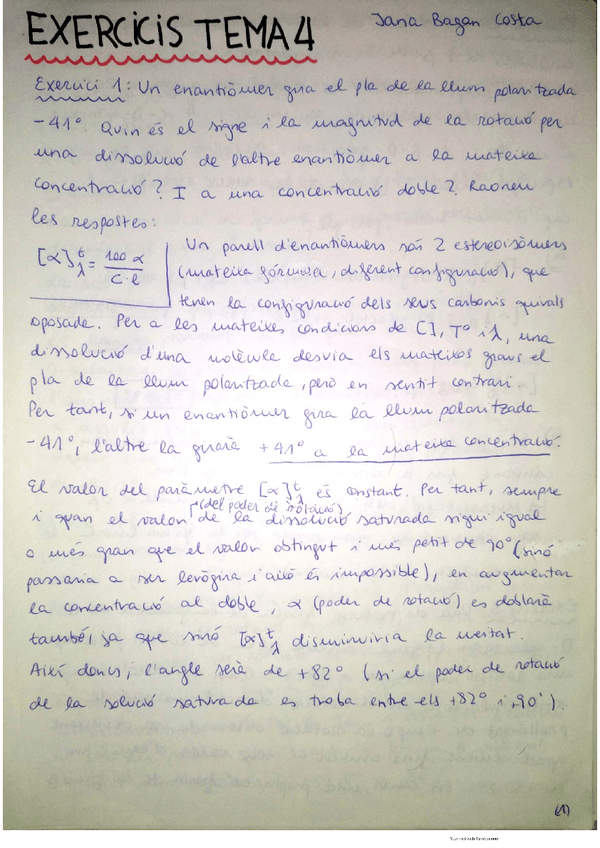 EXERCICIS TEMA 4
Jana Bagan Costa
Exercici 1: Un enantiòmer gira el pla de la llum polaritzada
-41°. Quin és el signe i la magnitud de la rotació per
una dissolució de l'altre enantiòmer a la mateixa
concentració? I a una concentració doble? Raoneu
les respostes:
[α]tλ = 100 α / C·l
Un parell d'enantiòmers són 2 estereoisòmers
(mateixa fórmula, diferent configuració), que
tenen la configuració dels seus carbonis quirals
oposada. Per a les mateixes condicions de [], Tº i λ, una
dissolució d'una molècula desvia els mateixos graus el
pla de la llum polaritzada, però en sentit contrari.
Per tant, si un enantiòmer gira la llum polaritzada
-41°, l'altre la girarà +41° a la mateixa concentració.
El valor del paràmetre [α]tλ és constant. Per tant, sempre
(del poder de rotació)
i quan el valor de la dissolució saturada sigui igual
o més gran que el valor obtingut i més petit de 90° (sinó
passaria a ser levògira i això és impossible), en augmentar
la concentració al doble, α (poder de rotació) es doblarà
també, ja que sinó [α]tλ disminuiria la meitat.
Així doncs, l'angle serà de +82° (si el poder de rotació
de la solució saturada es troba entre els +82° i +90°).
(1)